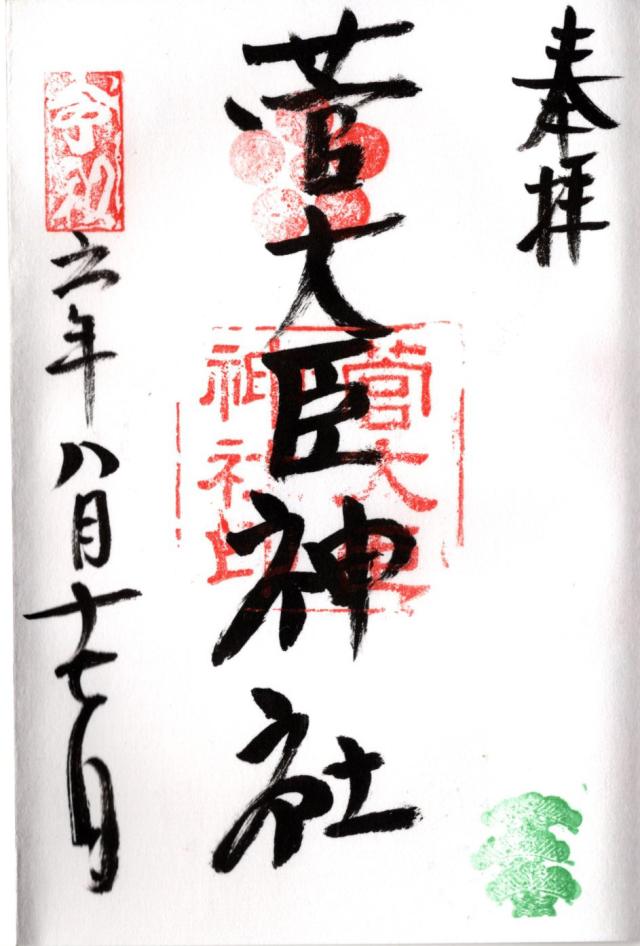 奉拝
菅大臣神社
菅大臣
神社印
令和
六年八月十七日